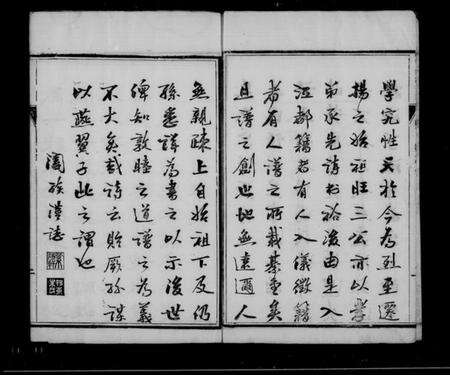 學究性天於今為烈至遷
揚之始祖旺三公亦以孝
弟承先詩書裕後由是入
江都籍者有人入儀徵籍
者有人譜之所載綦重矣
且譜之創也地無遠邇人
無親疎上自始祖下及仍
孫悉詳為書之以示後世
俾知敦睦之道譜之為義
不大矣哉詩云貽厥孫謀
以燕翼子此之謂也
闔族謹誌